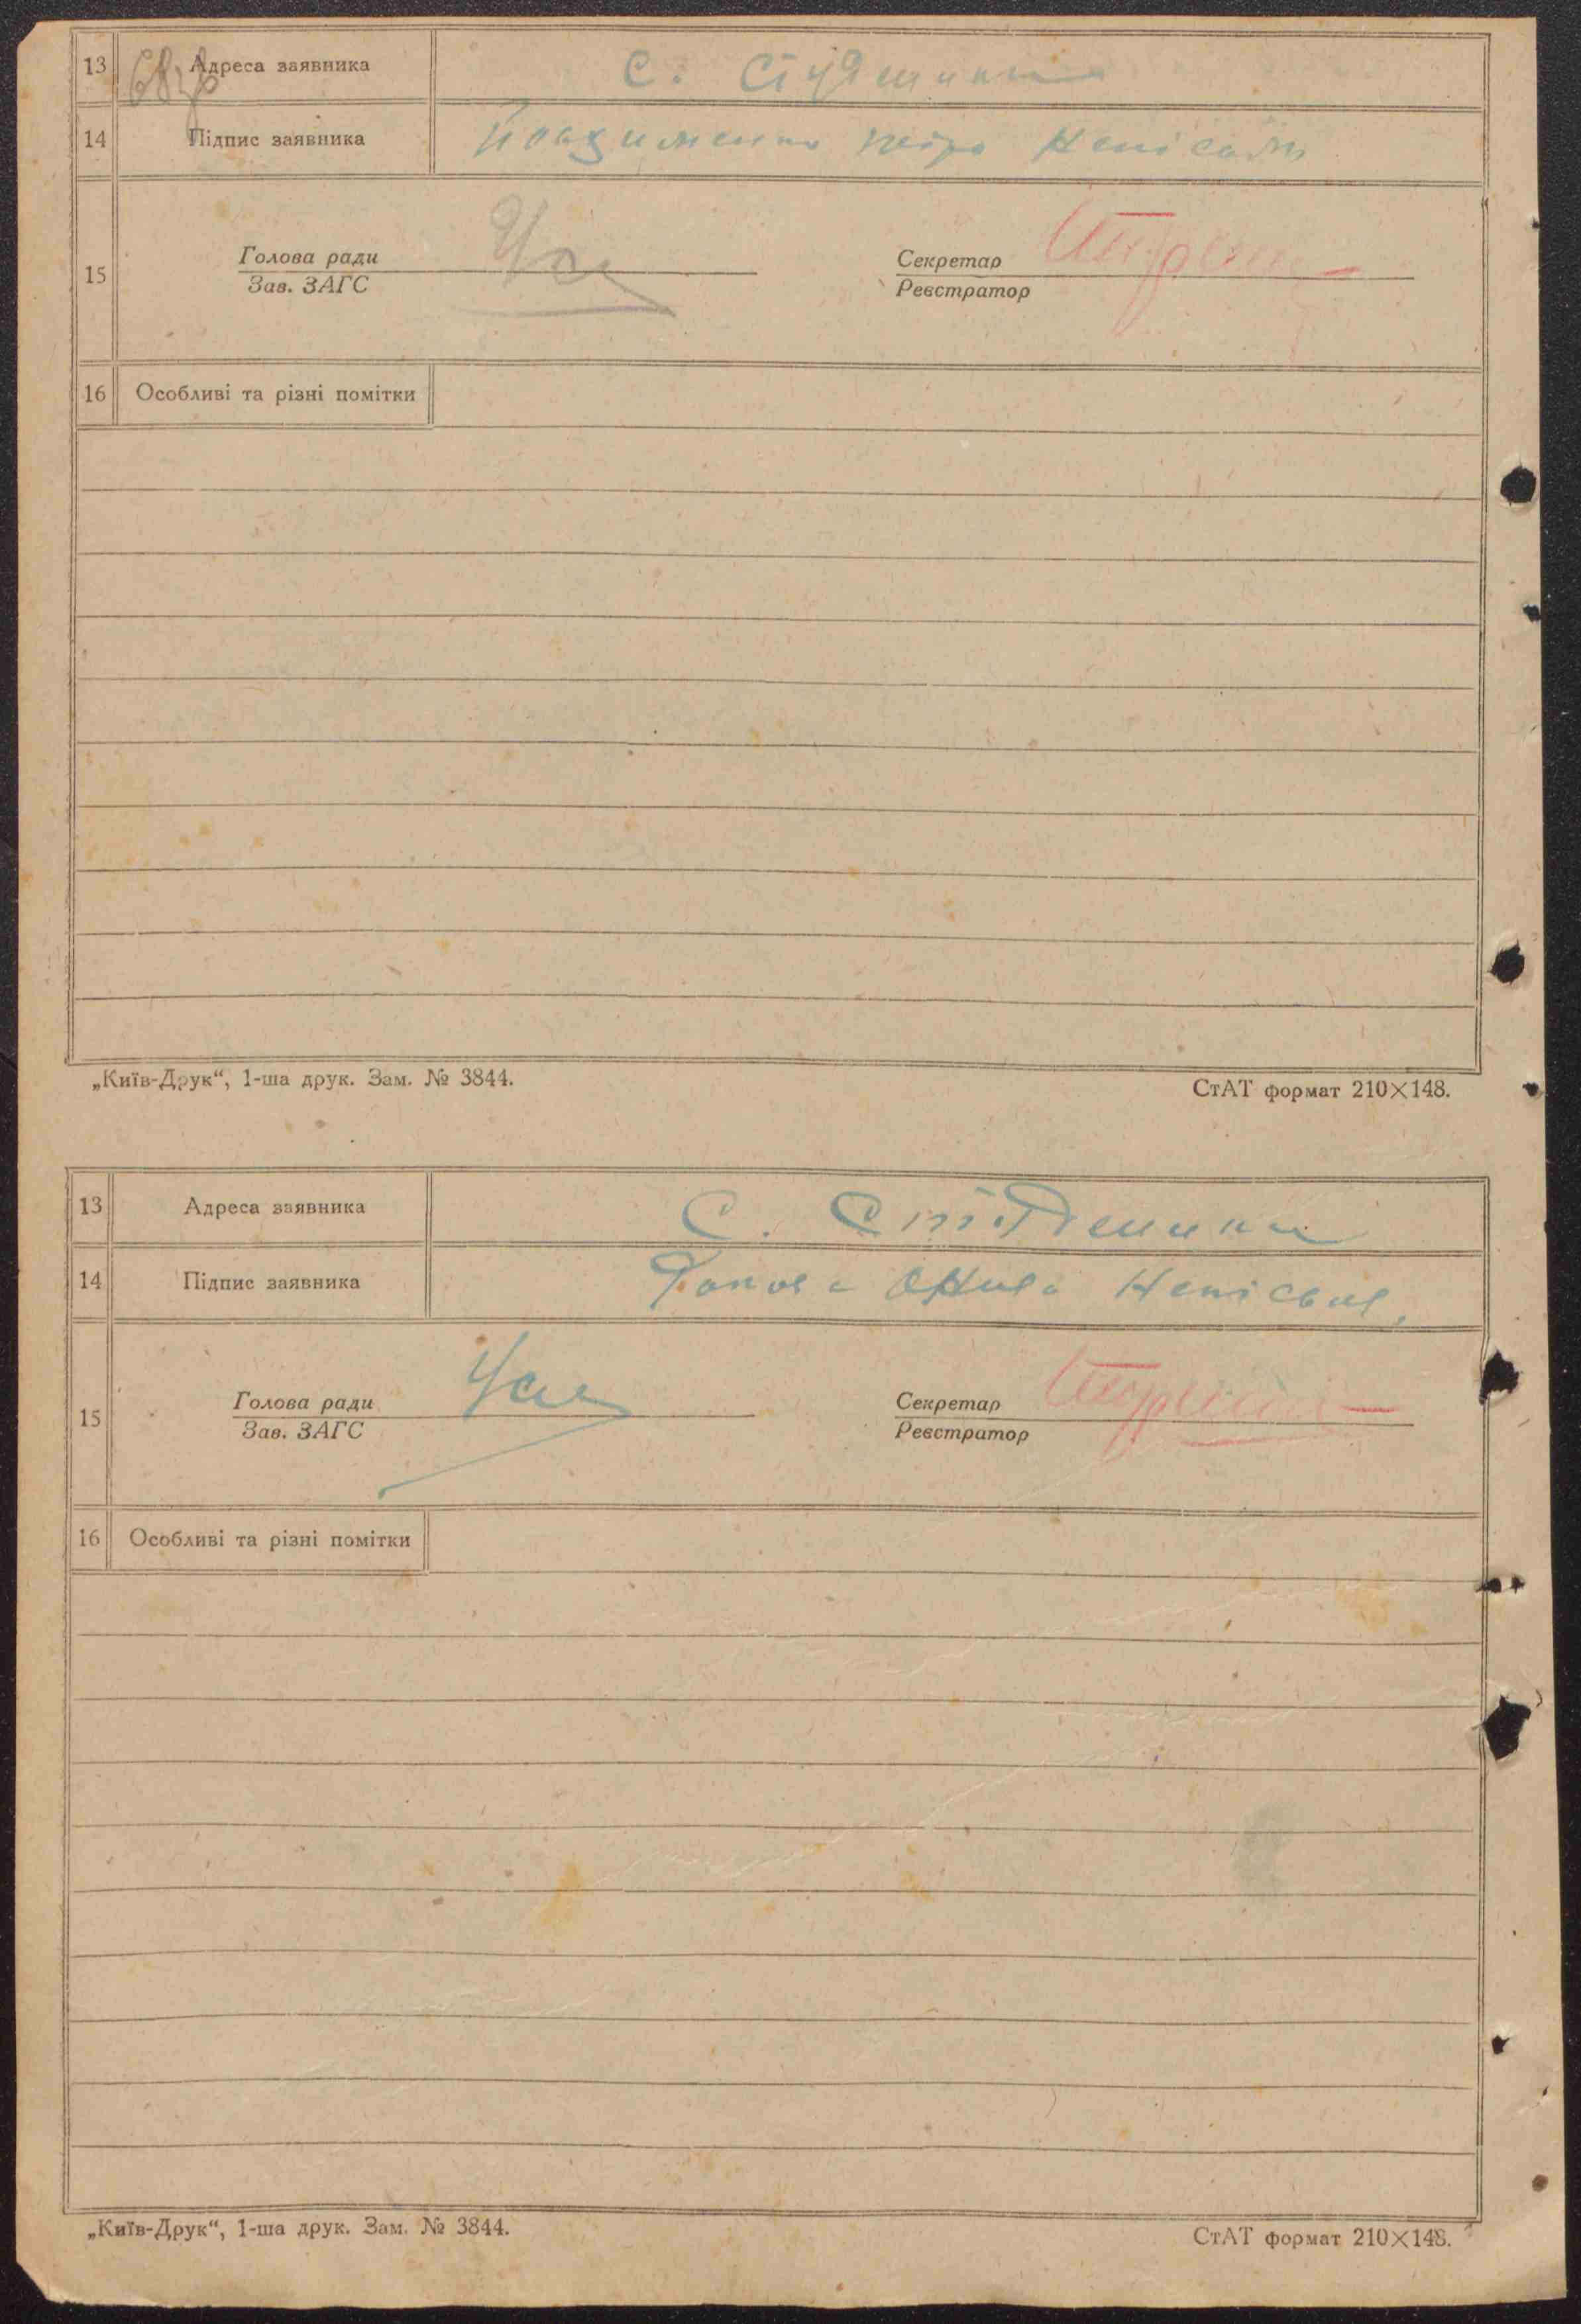 13 Адреса заявника С. Студеники
14 Підпис заявника петро Неписьм
15 Голова ради Секретар
Зав. ЗАГС Реєстратор
16 Особливі та різні помітки
„Київ-Друк“, 1-ша друк. Зам. № 3844. СтАТ формат 210×148.
13 Адреса заявника С. Студеники
14 Підпис заявника Неписьм
15 Голова ради Секретар
Зав. ЗАГС Реєстратор
16 Особливі та різні помітки
„Київ-Друк“, 1-ша друк. Зам. № 3844. СтАТ формат 210×148.